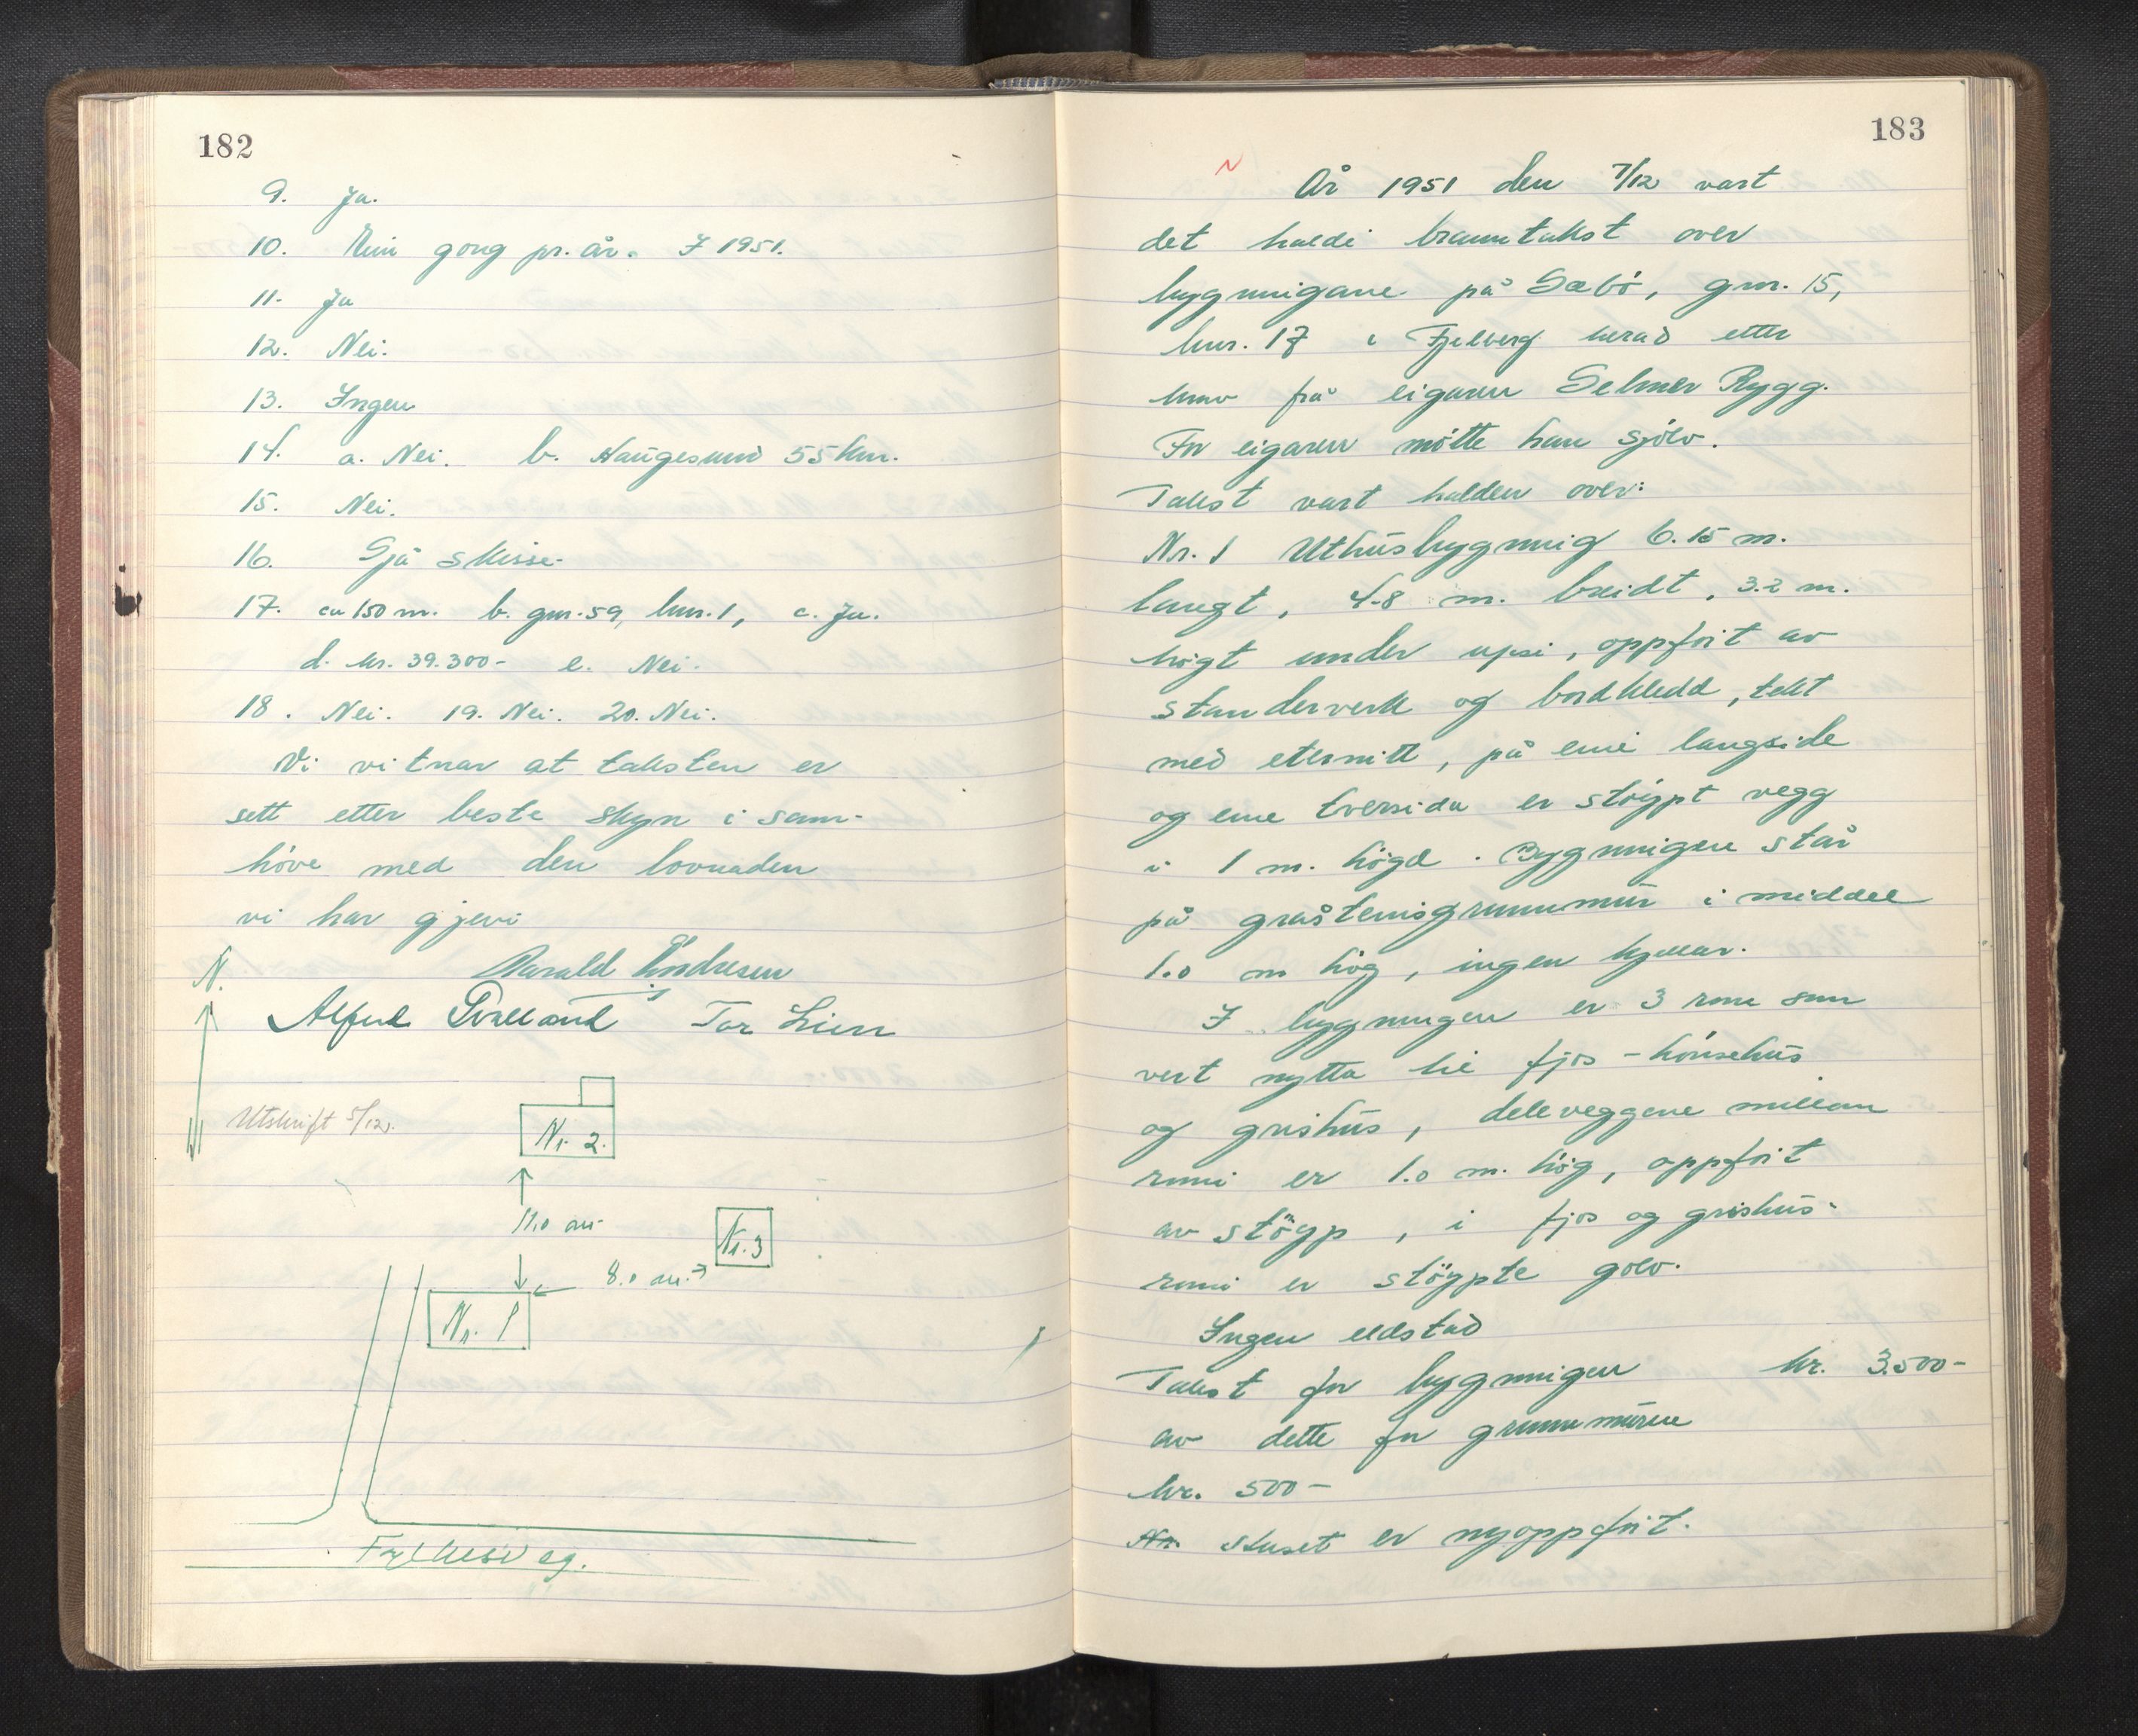 182
9. Ja.
10. Ein gong pr. år. I 1951.
11. Ja
12. Nei.
13. Ingen
14. a. Nei. b. Haugesund 55 km.
15. Nei.
16. Sjå skisse.
17. ca 150 m. b. gnr. 59, bnr. 1, c. Ja.
d. kr. 39.300- e. Nei.
18. Nei. 19. Nei. 20. Nei.
Vi vitnar at taksten er
sett etter beste skyn i sam-
høve med den lovnaden
vi har gjevi
N.
Harald Endresen
Alfred Tor Lien
Utskrift 5/12.
Nr. 2.
11.0 m.
Nr. 3
8.0 m.
Nr. 1
183
År 1951 den 7/12 vart
det haldi branntakst over
bygningane på Sæbø, gnr. 15,
bnr. 17 i Fjelberg herad etter
krav frå eigaren Selmer Rygg.
For eigaren møtte han sjølv.
Takst vart halden over:
Nr. 1 Uthusbygning 6.15 m.
langt, 4.8 m. breidt, 3.2 m.
høgt under upsi, oppført av
standerverk og bordkledd, tekt
med eternitt, på eine langside
og eine tversida er støypt vegg
i 1 m. høgd. Bygningen står
på gråsteinsgrunnmur i middel
1.0 m høg, ingen kjellar.
I bygningen er 3 rom som
vert nytta til fjos - hønsehus
og grishus, deleveggene millom
romi er 1.0 m. høg, oppført
av støyp, i fjos og grishus-
romi er støypte golv.
Ingen eldstad
Takst for bygningen kr. 3.500-
av dette for grunnmuren
kr. 500-
Nr. Huset er nyoppført.